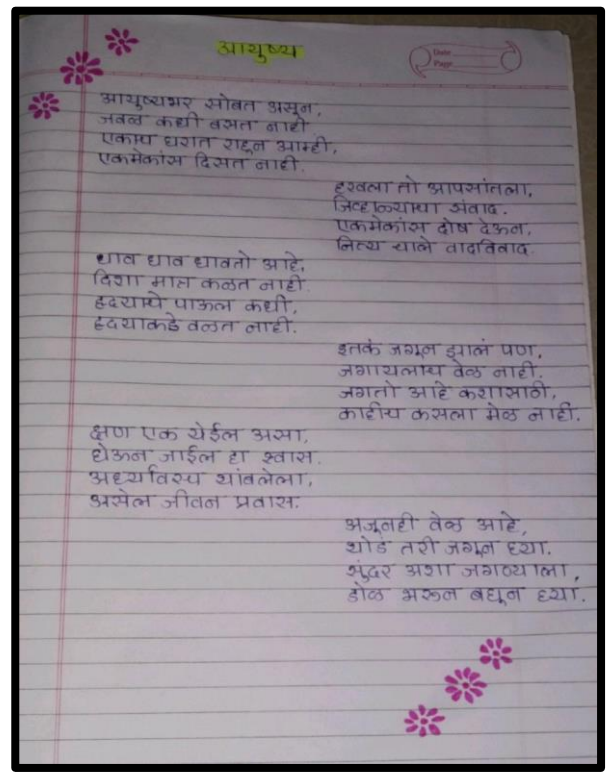 आयुष्य
Date
Page
आयुष्यभर सोबत असून,
जवळ कधी बसत नाही
एकाच घरात राहून आम्ही,
एकमेकांस दिसत नाही.
हरवला तो आपसांतला,
जिव्हाळ्याचा संवाद.
एकमेकांस दोष देऊन,
नित्य चाले वादविवाद
धाव धाव धावतो आहे,
दिशा मात्र कळत नाही.
हृदयाचे पाऊल कधी,
हृदयाकडे वळत नाही.
इतकं जगून झालं पण,
जगायलाच वेळ नाही.
जगतो आहे कशासाठी,
काहीच कसला मेळ नाही.
क्षण एक येईल असा,
घेऊन जाईल हा श्वास.
अर्ध्यावरच थांबलेला,
असेल जीवन प्रवास.
अजूनही वेळ आहे,
थोडं तरी जगून घ्या.
सुंदर अशा जगण्याला,
डोळे भरून बघून घ्या.